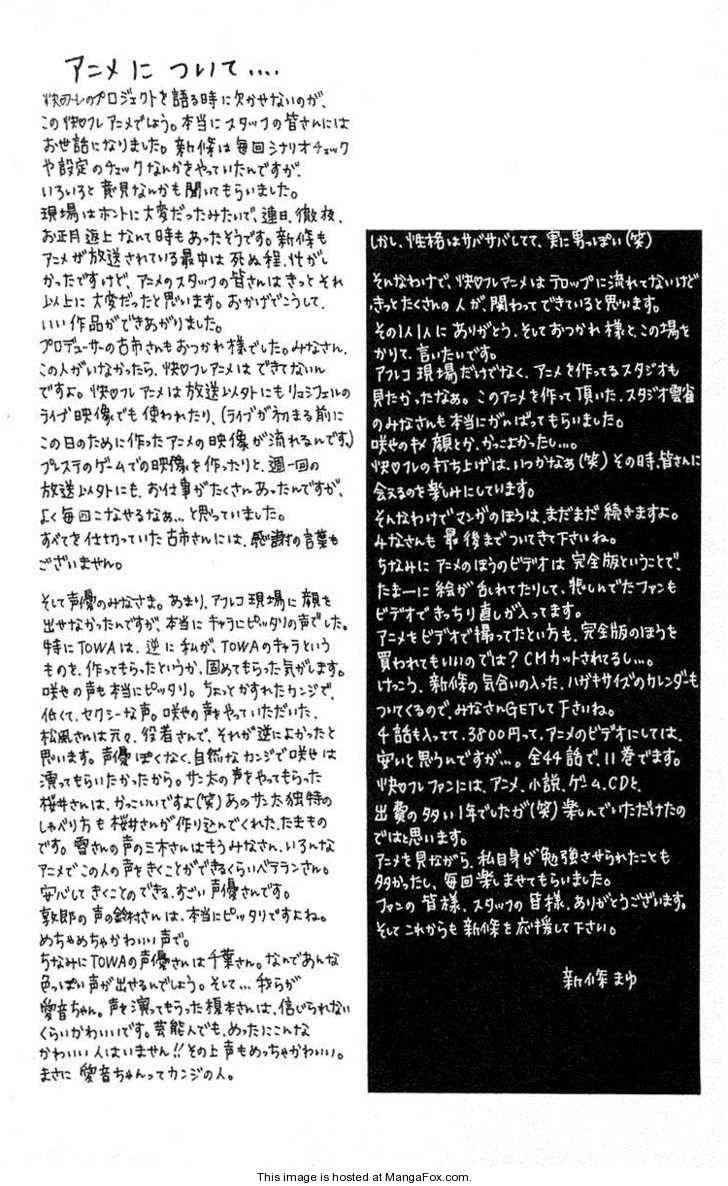 アニメに ついて....
快♡フレのプロジェクトを語る時に欠かせないのが、
この快♡フレアニメでしょう。本当にスタッフの皆さんには
お世話になりました。新條は毎回シナリオチェック
や設定のチェックなんかをやっていたんですが、
いろいろと意見なんかも聞いてもらいました。
現場はホントに大変だったみたいで、連日、徹夜、
お正月返上なんて時もあったそうです。新條も
アニメが放送されている最中は死ぬ程、忙がし
かったですけど、アニメのスタッフの皆さんはきっとそれ
以上に大変だったと思います。おかげでこうして、
いい作品ができあがりました。
プロデューサーの古市さんもおつかれ様でした。みなさん、
この人がいなかったら、快♡フレアニメはできてないん
ですよ。快♡フレアニメは放送以外にもリュシフェルの
ライブ映像でも使われたり、(ライブが初まる前に
この日のために作ったアニメの映像が流れるんです。)
プレステのゲームでの映像を作ったりと、週一回の
放送以外にも、お仕事がたくさんあったんですが、
よく毎回こなせるなぁ...と思っていました。
すべてを仕切っていた古市さんには、感謝の言葉も
ございません。
そして声優のみなさま。あまり、アフレコ現場に顔を
出せなかったんですが、本当にキャラにピッタリの声でした。
特にTOWAは、逆に私が、TOWAのキャラという
ものを、作ってもらったというか、固めてもらった気がします。
咲也の声も本当にピッタリ。ちょっとかすれたカンジで、
低くて、セクシーな声。咲也の声をやっていただいた、
松風さんは元々、役者さんで、それが逆によかったと
思います。声優ぽくなく、自然なカンジで咲也は
演ってもらいたかったから。サン太の声をやってもらった
桜井さんは、かっこいいですよ(笑)あのサン太独特の
しゃべり方も桜井さんが作り込んでくれた、たまもの
です。雪さんの声の三木さんはもうみなさん、いろんな
アニメでこの人の声をきくことができるくらいベテランさん。
安心してきくことのできる、すごい声優さんです。
敦郎の声の鈴村さんは、本当にピッタリですよね。
めちゃめちゃかわいい声で。
ちなみにTOWAの声優さんは千葉さん。なんであんな
色っぽい声が出せるんでしょう。そして...我らが
愛音ちゃん。声を演ってもらった榎本さんは、信じられない
くらいかわいいです。芸能人でも、めったにこんな
かわいい人はいません!!その上声もめっちゃかわいい。
まさに愛音ちゃんってカンジの人。
しかし、性格はサバサバしてて、実に男っぽい(笑)
そんなわけで、快♡フレアニメはテロップに流れてないけど
きっとたくさんの人が、関わってできていると思います。
その1人1人にありがとう、そしておつかれ様と、この場を
かりて、言いたいです。
アフレコ現場だけでなく、アニメを作ってるスタジオも
見たかったなぁ。このアニメを作って頂いた、スタジオ雲雀
のみなさんも本当にがんばってもらいました。
咲也のキメ顔とか、かっこよかったし...。
快♡フレの打ち上げは、いつかなぁ(笑)その時、皆さんに
会えるのを楽しみにしています。
そんなわけでマンガのほうは、まだまだ続きますよ。
みなさんも最後までついてきて下さいね。
ちなみにアニメのほうのビデオは完全版ということで、
たまーに絵が乱れてたりして、悲しんでたファンも
ビデオできっちり直しが入ってます。
アニメをビデオで撮ってたという方も、完全版のほうを
買われてもいいのでは?CMカットされてるし...。
けっこう、新條の気合いの入った、ハガキサイズのカレンダーも
ついてくるので、みなさんGETして下さいね。
4話も入ってて、3800円って、アニメのビデオにしては、
安いと思うんですが...。全44話で、11巻でます。
快♡フレファンには、アニメ、小説、ゲーム、CDと、
出費の多い1年でしたが(笑)楽しんでいただけたの
ではと思います。
アニメを見ながら、私自身が勉強させられたことも
多かったし、毎回楽しませてもらいました。
ファンの皆様、スタッフの皆様、ありがとうございます。
そしてこれからも新條を応援して下さい。
新條まゆ
This image is hosted at MangaFox.com.